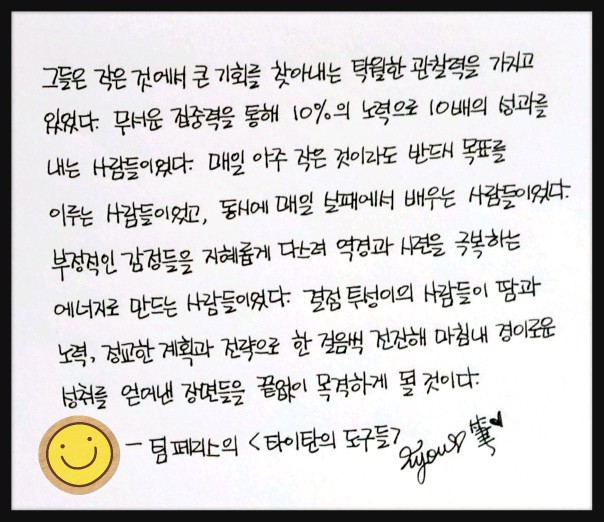 그들은 작은 것에서 큰 기회를 찾아내는 탁월한 관찰력을 가지고
있었다. 무서운 집중력을 통해 10%의 노력으로 10배의 성과를
내는 사람들이었다. 매일 아주 작은 것이라도 반드시 목표를
이루는 사람들이었고, 동시에 매일 실패에서 배우는 사람들이었다.
부정적인 감정들을 지혜롭게 다스려 역경과 시련을 극복하는
에너지로 만드는 사람들이었다. 결점 투성이의 사람들이 땀과
노력, 정교한 계획과 전략으로 한 걸음씩 전진해 마침내 경이로운
성취를 얻어낸 장면들을 끝없이 목격하게 될 것이다.
- 팀 페리스의 <타이탄의 도구들>